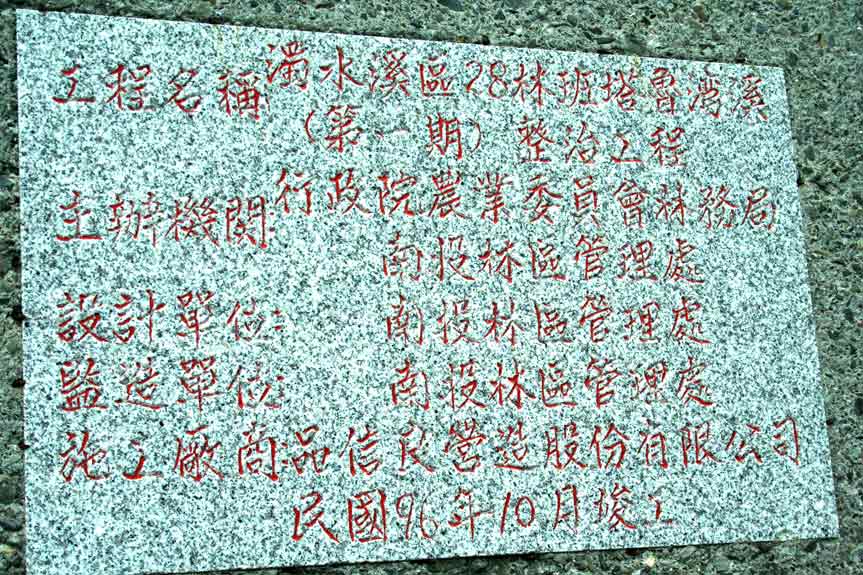 工程名稱:濁水溪區28林班塔魯灣溪
(第一期)整治工程
主辦機關:行政院農業委員會林務局
南投林區管理處
設計單位:南投林區管理處
監造單位:南投林區管理處
施工廠商:品信民營造股份有限公司
民國96年10月竣工